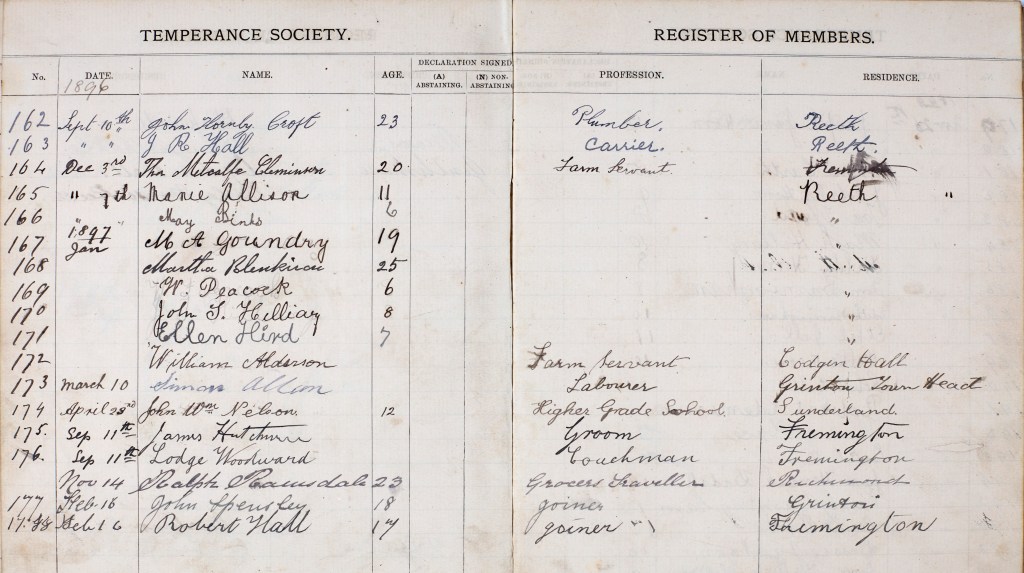 TEMPERANCE SOCIETY. REGISTER OF MEMBERS.
No. DATE. NAME. AGE. DECLARATION SIGNED (A) ABSTAINING. (N) NON-ABSTAINING PROFESSION. RESIDENCE.
1896
162 Sept 10th John Hornby Croft 23 Plumber. Reeth
163 " " J R Hall Carrier. Reeth.
164 Dec 3rd Metcalfe 20 Farm Servant.
165 " 7th Marie Allison 11 Reeth "
166 May Binks 6 "
1897
167 Jan M A Goundry 19 "
168 Martha Blenkiron 25
169 W. Peacock 6 "
170 John S. Hilliary 8 "
171 Ellen Hird 7 "
172 William Alderson Farm Servant Cogden Hall
173 March 10 Simon Allan Labourer Grinton Town Head
174 April John Wm Nelson. 12 Higher Grade School. Sunderland.
175. Sep 11th James Groom Fremington
176. Sep 11th Lodge Woodward Coachman Fremington
Nov 14 Ralph 23 Grocers Traveller Richmond
177 Feb 16 John Spensley 18 joiner Grinton
178 Feb 16 Robert Hall 17 joiner " Fremington